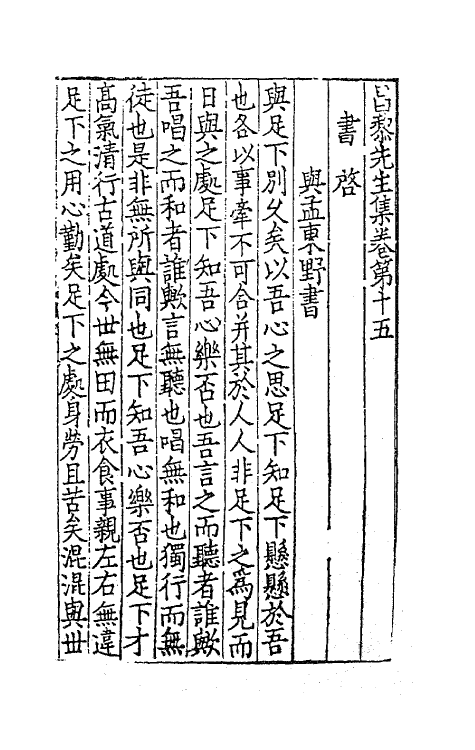 昌黎先生集卷第十五
書啓
與孟東野書
與足下別乆矣以吾心之思足下知足下懸懸於吾
也各以事牽不可合并其於人人非足下之爲見而
日與之處足下知吾心樂否也吾言之而聽者誰歟
吾唱之而和者誰歟言無聽也唱無和也獨行而無
徒也是非無所與同也足下知吾心樂否也足下才
髙氣清行古道處今丗無田而衣食事親左右無違
足下之用心勤矣足下之處身勞且苦矣混混與丗